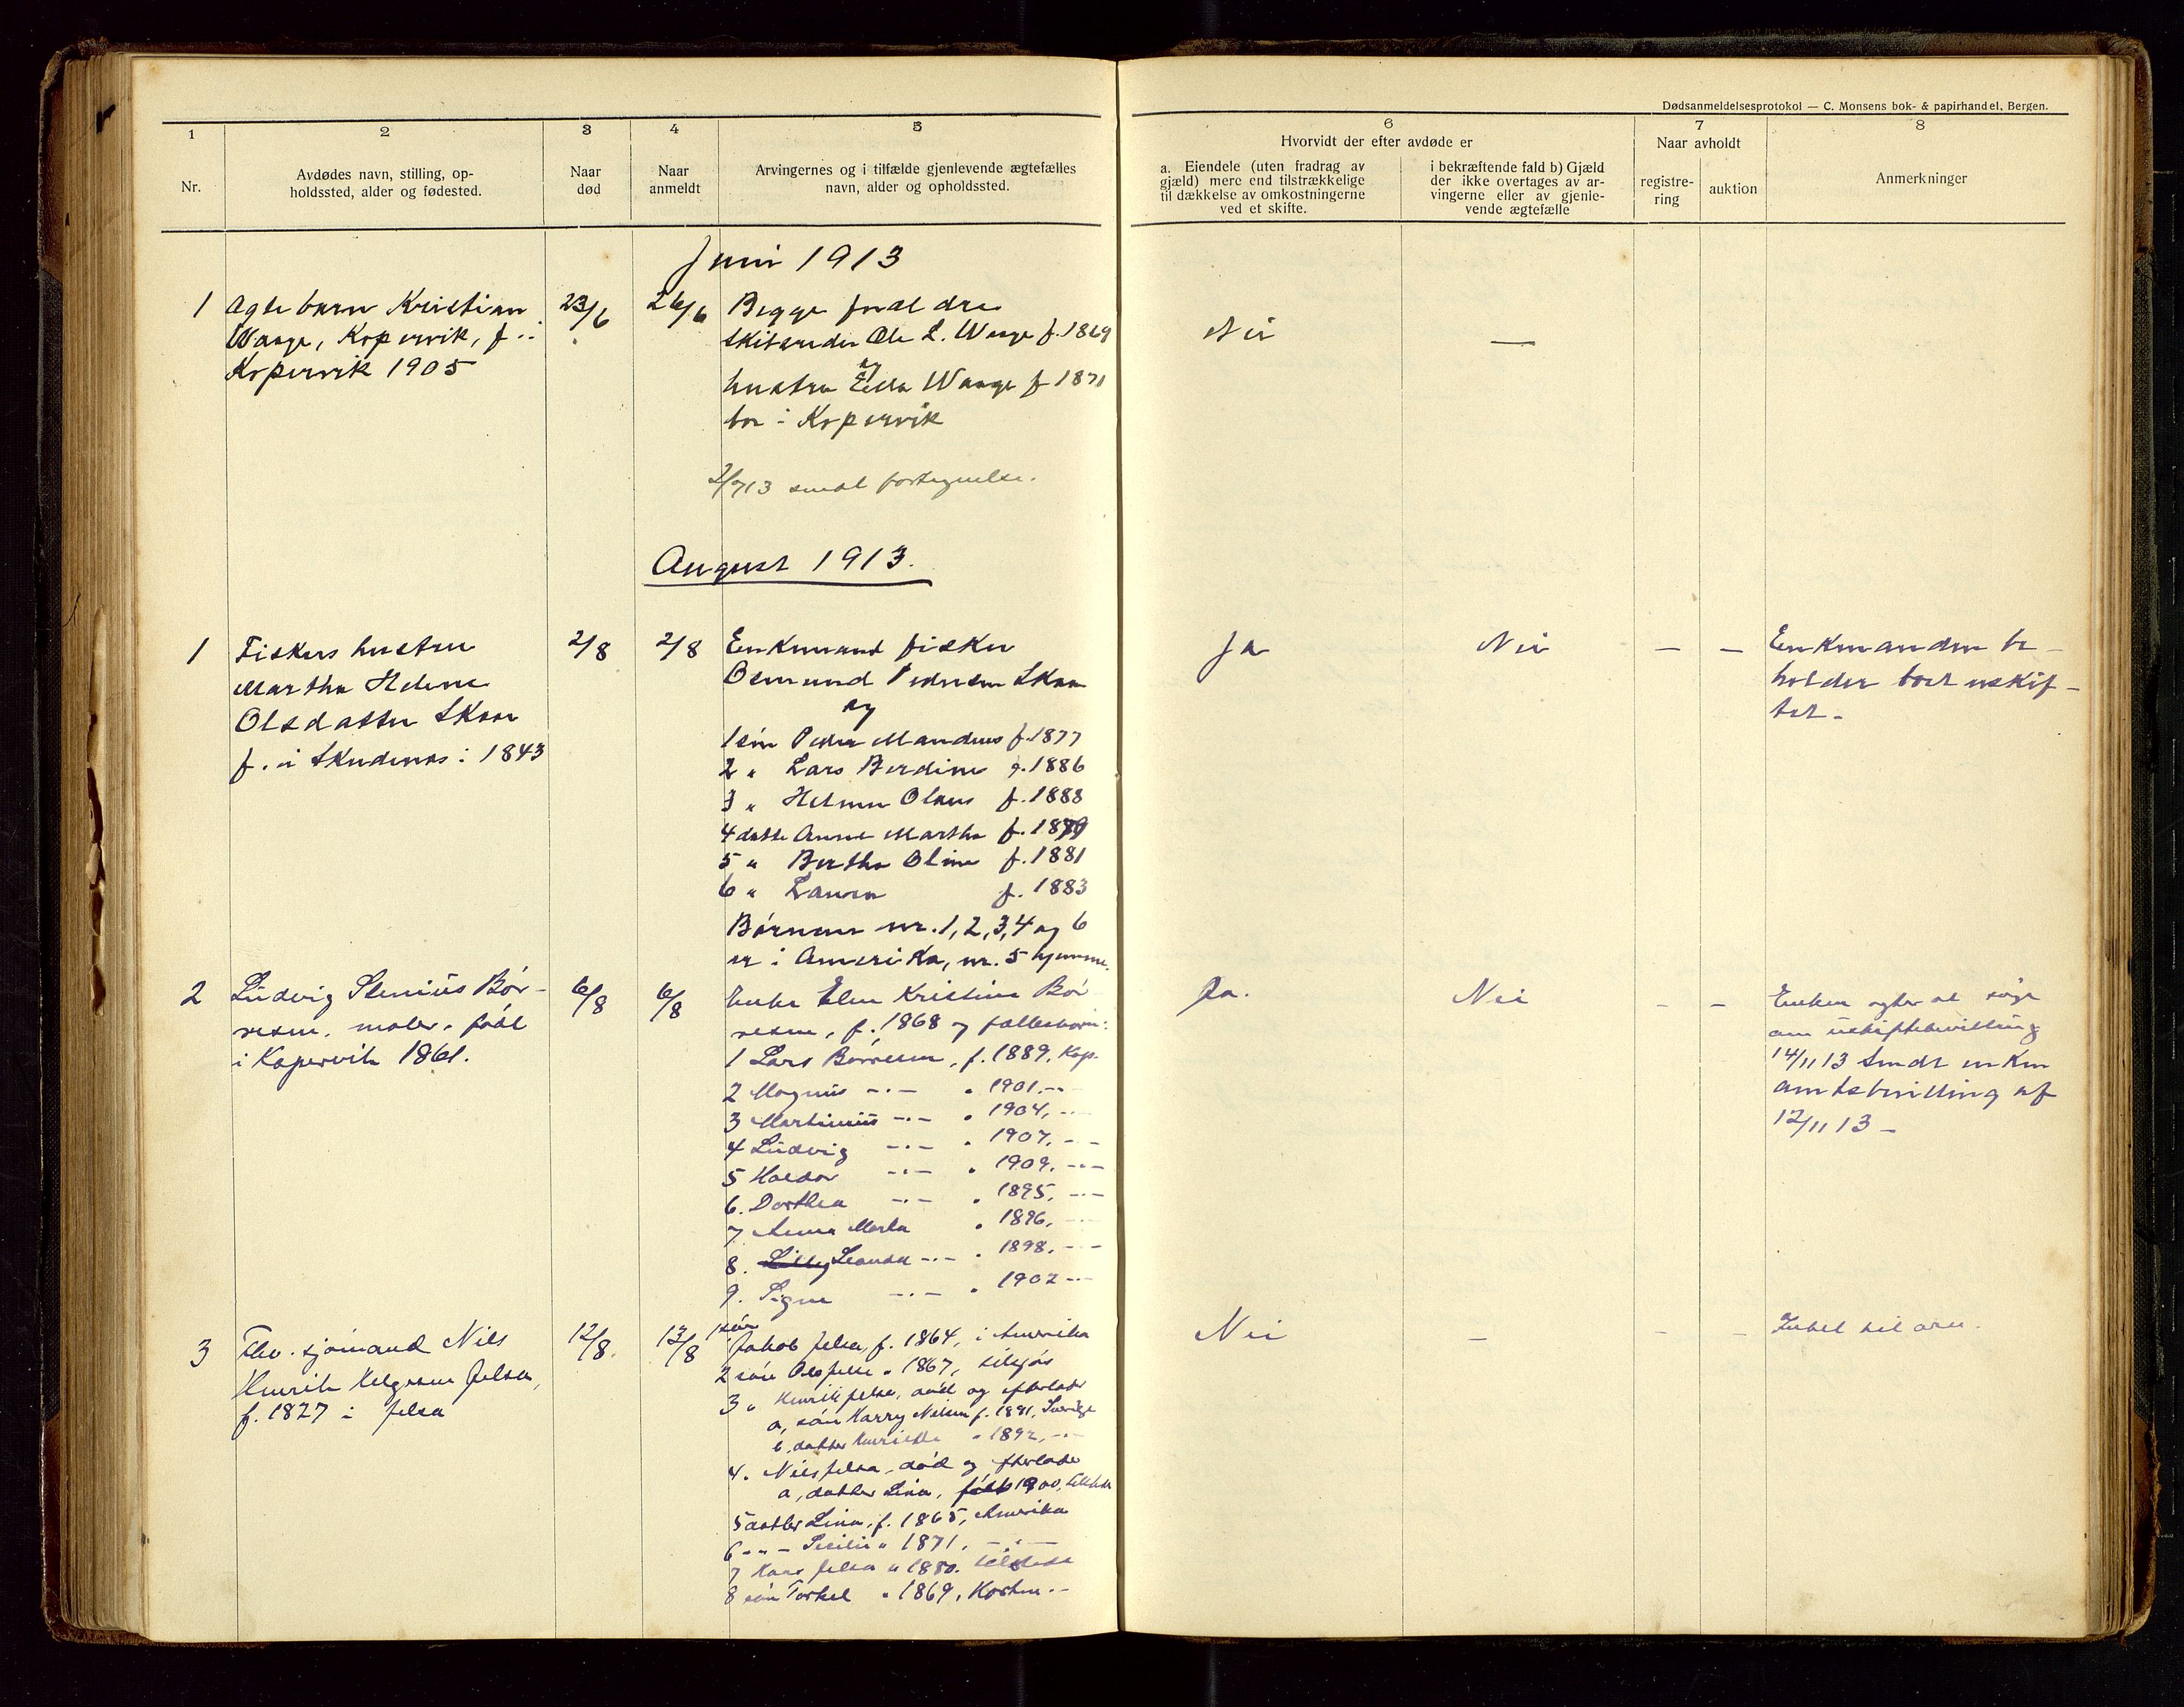 Dødsanmeldelsesprotokol — C. Monsens bok- & papirhandel, Bergen.
1 2 3 4 5 6 7 8
Nr.
Avdødes navn, stilling, op-
holdssted, alder og fødested.
Naar
død
Naar
anmeldt
Arvingernes og i tilfælde gjenlevende ægtefælles
navn, alder og opholdssted.
Hvorvidt der efter avdøde er
a. Eiendele (uten fradrag av
gjæld) mere end tilstrækkelige
til dækkelse av omkostningerne
ved et skifte.
i bekræftende fald b) Gjæld
der ikke overtages av ar-
vingerne eller av gjenle-
vende ægtefælle
Naar avholdt
registre-
ring
auktion
Anmerkninger
Juni 1913
1
Ogte barn Kristian
Waage, Kopervik, f. i
Kopervik 1905
23/6
26/6
Begge foræl dre
Ole L. Waage f. 1869
og
hustru Waage f 1871
bor i Kopervik
2/713 fortegnelse.
Nei
—
August 1913.
1
Fiskers hustru
Martha Helene
Olsdatter Skaar
f. i Skudenes i 1843
2/8
2/8
Enkemand fisker
Osmund Pedersen Skaar
og
1 søn Peder Mandius f. 1877
2 " Lars Berdines f. 1886
3 " Helmer Olaus f. 1888
4 datte Anne Martha f. 1879
5 " Bertha Oline f. 1881
6 " Laura f. 1883
Børnene nr. 1, 2, 3, 4 og 6
er i Amerika, nr. 5 hjemme.
Ja
Nei
—
—
Enkemanden be-
holder boet uskif-
tet -
2
Ludvig Stenius Bør-
resen, maler, født
i Kopervik 1861.
6/8
6/8
Enke Elen Kristine Bør
resen, f. 1868 og fællesbørn:
1 Lars Børresen, f. 1889, Kop.
2 Magnus -"- " 1901, -"-
3 Martinius -"- " 1904, -"-
4 Ludvig -"- " 1907, -"-
5 Haldor -"- " 1909, -"-
6. Dorthea -"- " 1895, -"-
7 Anna Marta " 1896, -"-
8. Lilly Leanda -"- " 1898, -"-
9. Signe -"- " 1902 -"-
Ja.
Nei
-
-
Enken agter at søge
om uskiftebevilling
14/11 13 Sendt enken
amtsbevilling af
12/11 13 -
3
Fhv. sjømand Nils
Henrik Helgesen Jelsa,
f. 1827 i Jelsa
12/8
13/8
1 søn
Jakob Jelsa, f. 1864, i Amerika
2 søn Ole Jelsa " 1867, tilsjøs
3 " Henrik Jelsa, død og efterlader
a, søn Harry Nilsen f. 1891, Sverige
b, datter Henriette " 1892, -"-
4. Nils Jelsa, død og efterlader
a, datter Lina, født 1900,
5 datter Lina, f. 1865, Amerika
6 -"- Secilie " 1871, -"-
7 Hans Jelsa " 1880.
8 søn Torkel " 1869, Horten. -
Nei
-
-
-
Intet til arv.